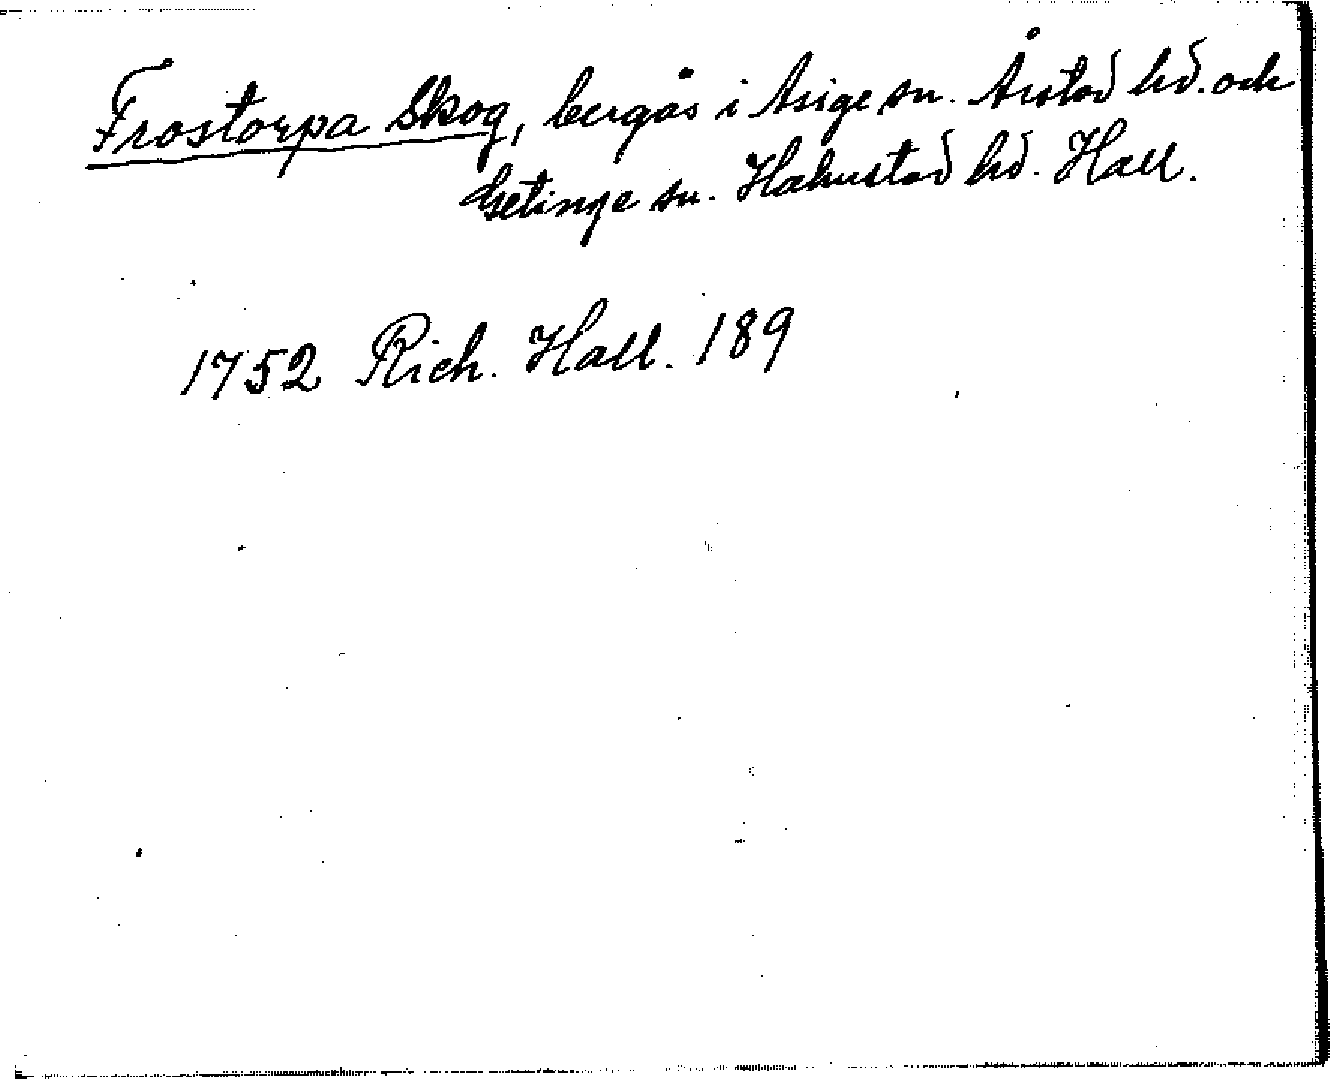 Frostorpa Skog, bergås i Asige sn. Årstad hd. och
Getinge sn. Halmstad hd. Hall.
1752 Rich. Hall. 189